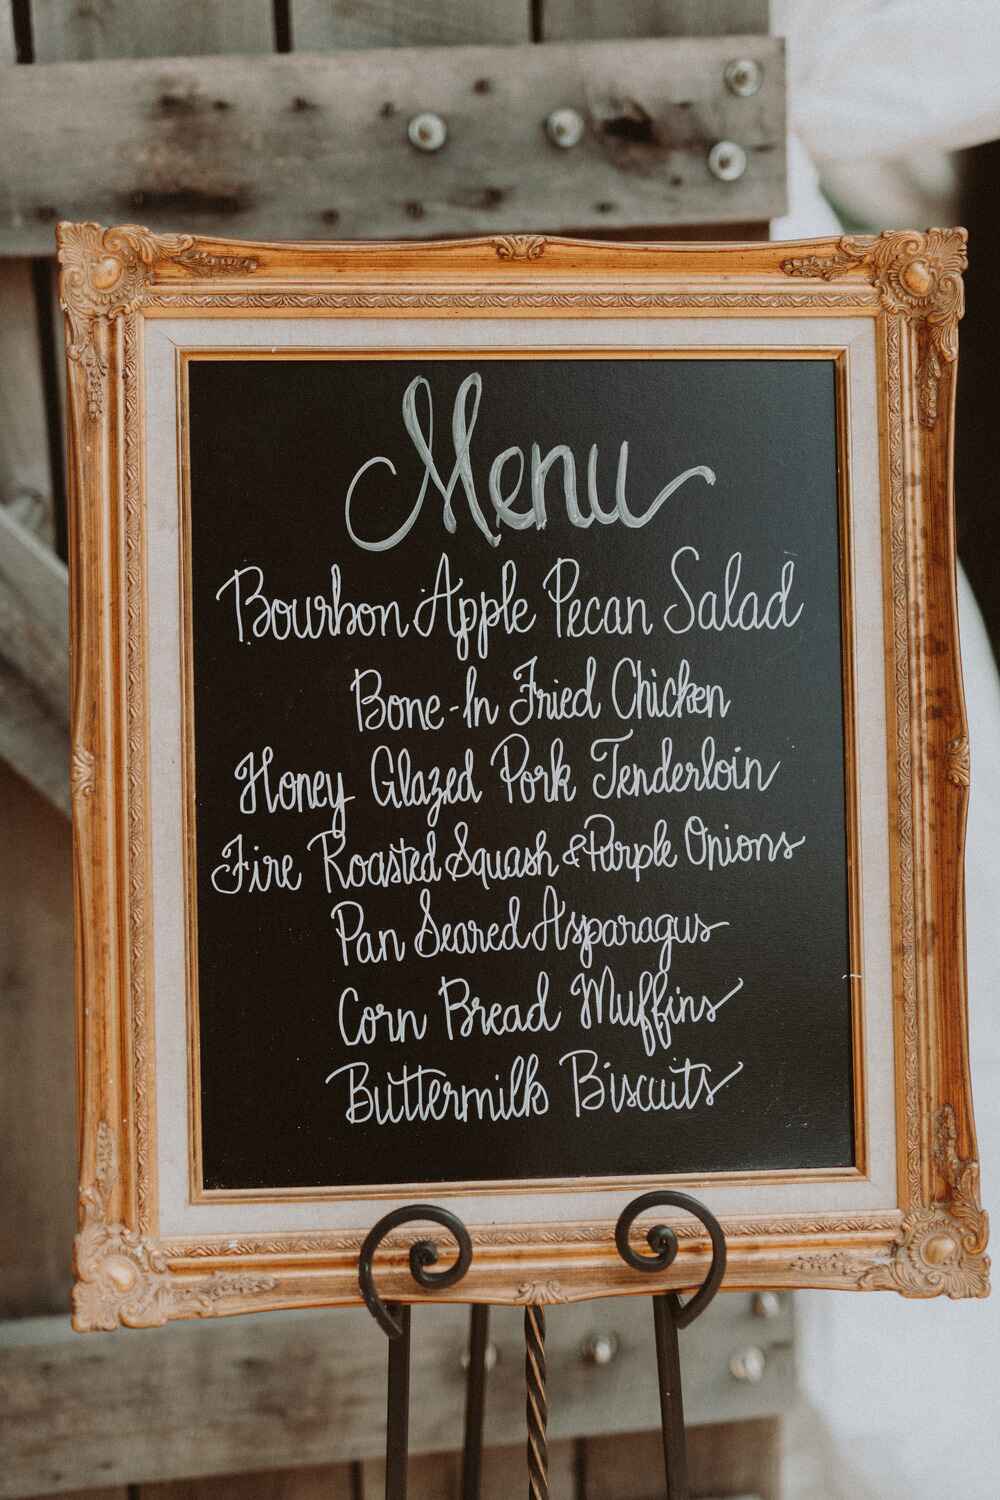 Menu
Bourbon Apple Pecan Salad
Bone-In Fried Chicken
Honey Glazed Pork Tenderloin
Fire Roasted Squash & Purple Onions
Pan Seared Asparagus
Corn Bread Muffins
Buttermilk Biscuits